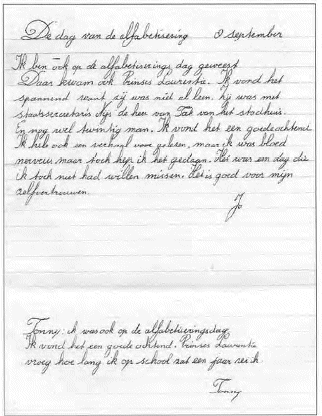 De dag van de alfabetisering 9 september
Ik ben ook op de alfabetiserings dag geweest
Daar kwam ook Prinses Laurentia. Ik vond het
spannend want zij was niet alleen hij was met
staatssecretaris en de heer van Tak van het stadhuis.
En nog wel twintig man. Ik vond het een goede ochtend.
Ik heb ook een verhaal voor gelezen, maar ik was bloed
nerveus maar toch heb ik het gedaan. Het was een dag die
ik toch niet had willen missen. Het is goed voor mijn
zelfvertrouwen.
Jo
Tonny: ik was ook op de alfabetiseringsdag
Ik vond het een goede ochtend. Prinses Laurentia
vroeg hoe lang ik op school zat een jaar zei ik.
Tonny